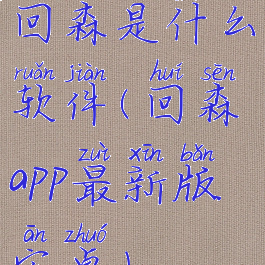 回森是什么
ruǎn jiàn huí sēn
软件(回森
zuì xīn bǎn
app最新版
ān zhuó
安卓)